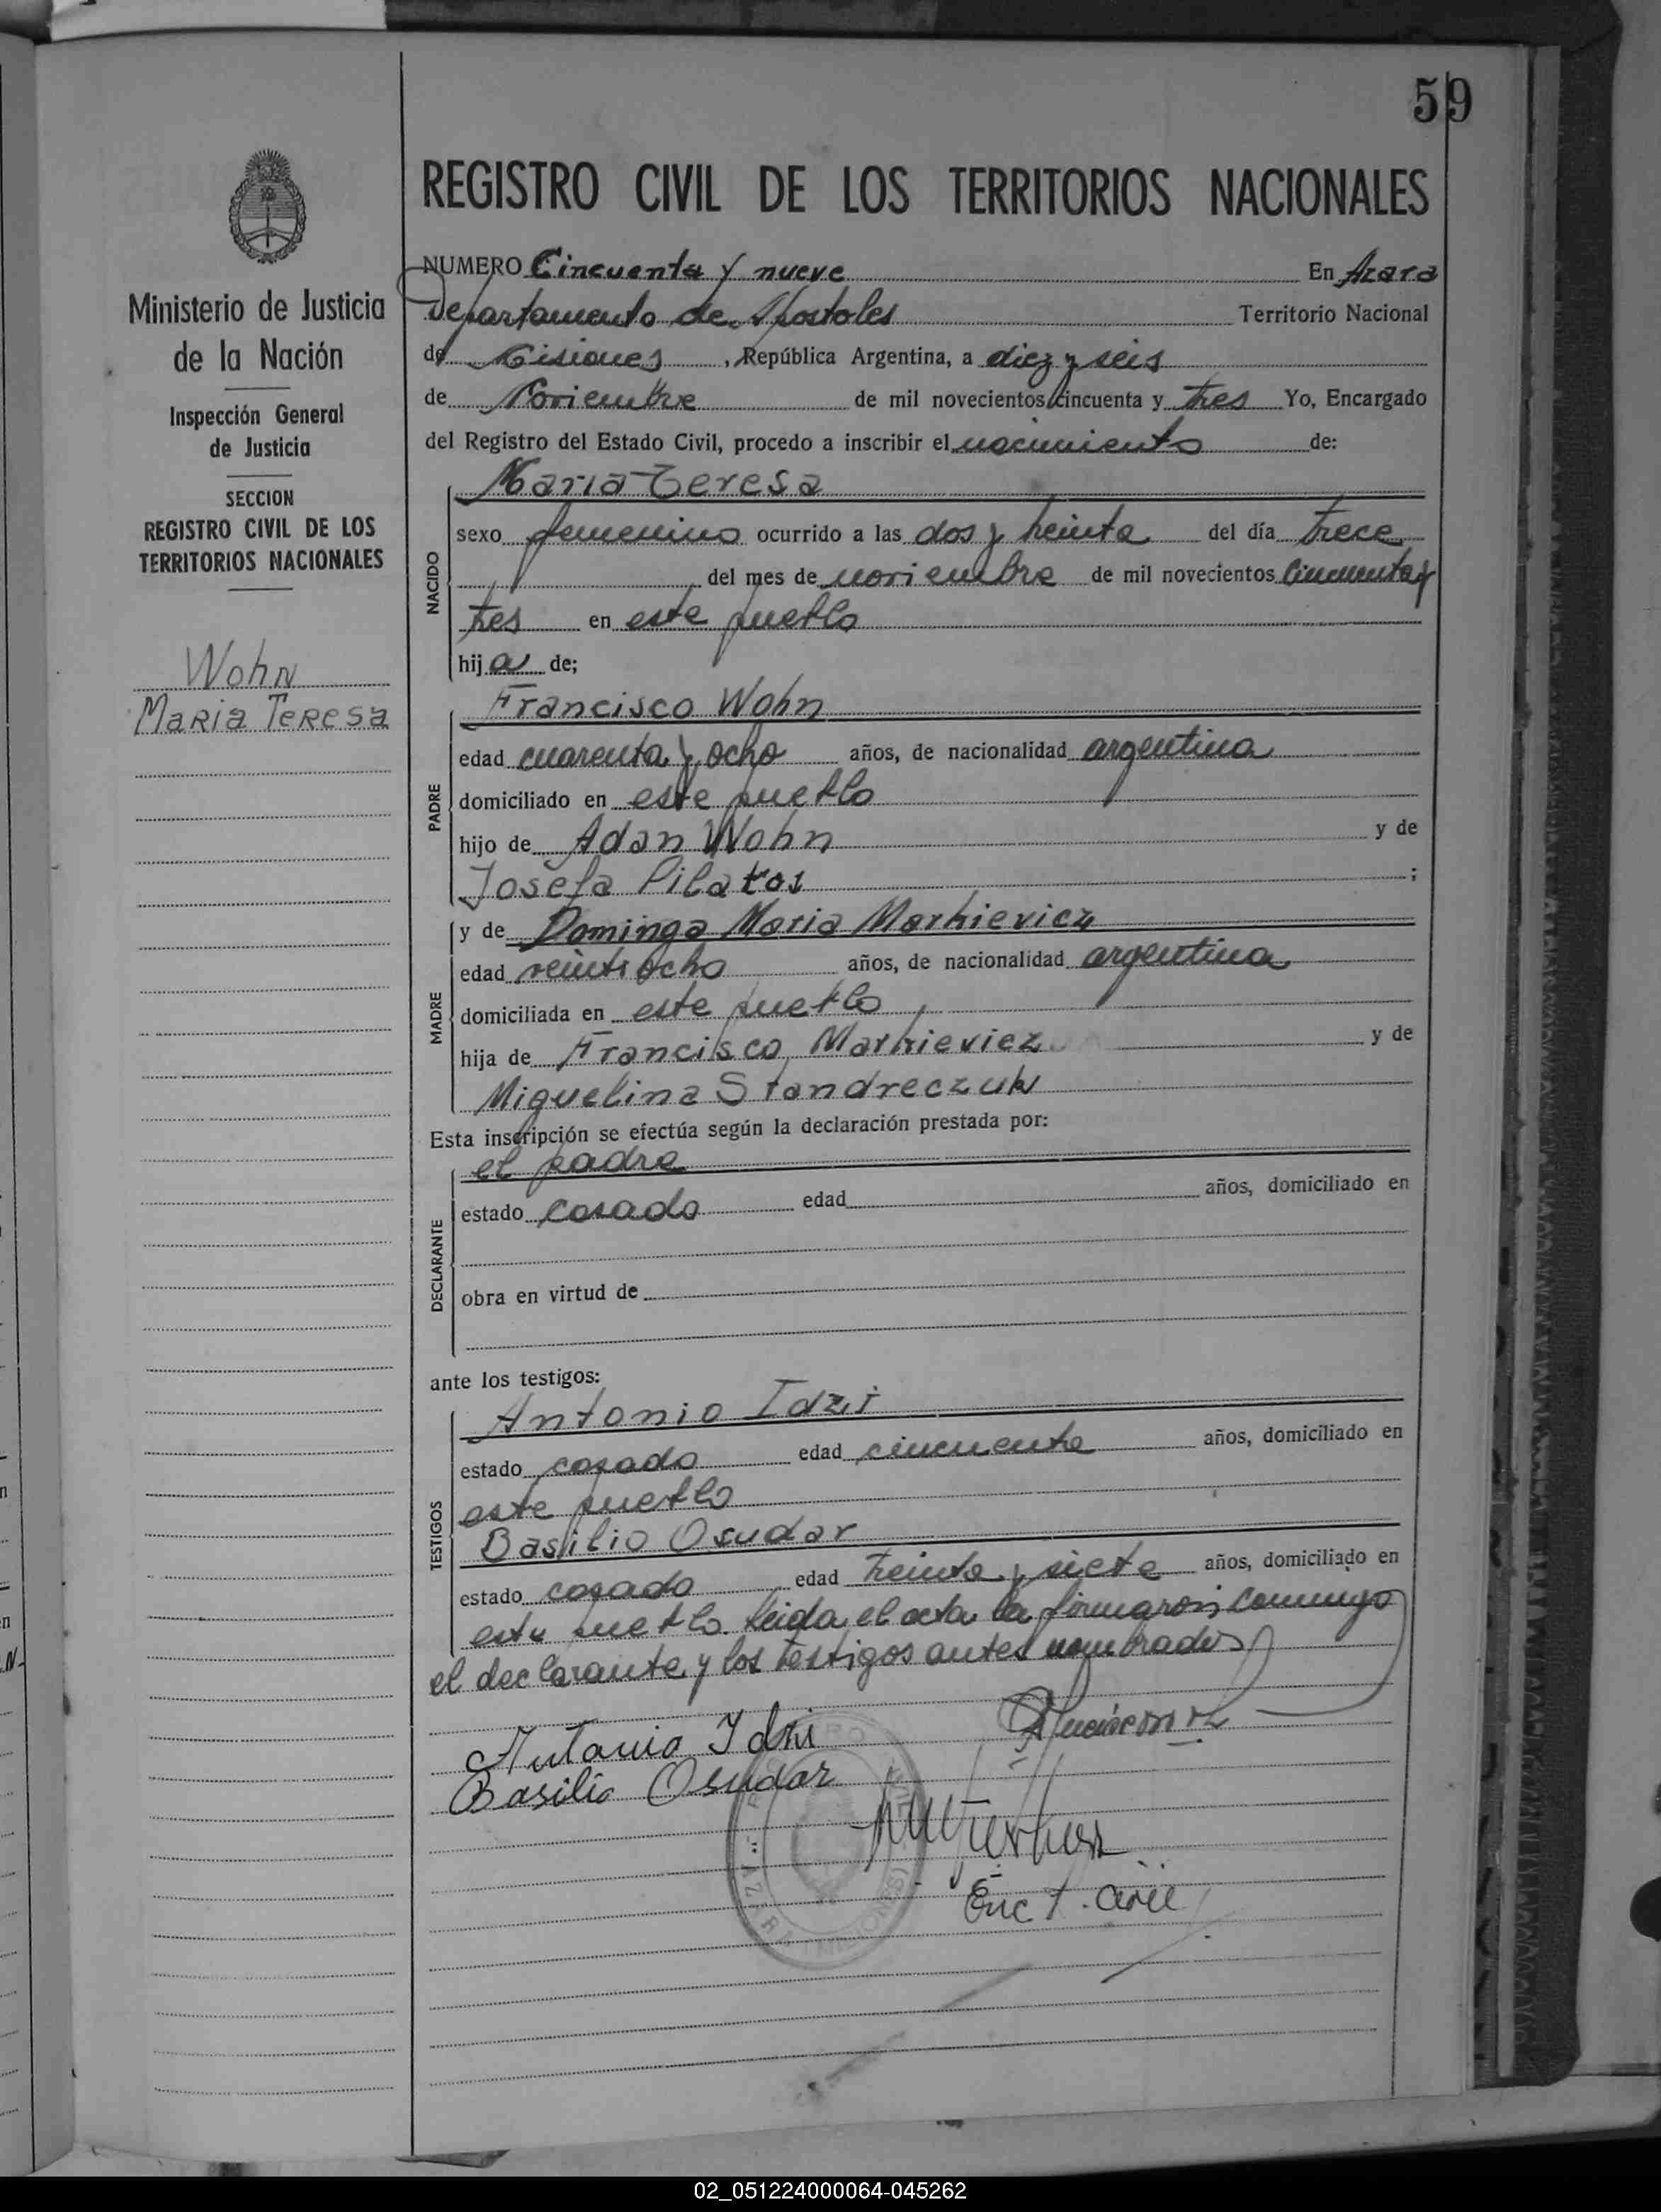 59
REGISTRO CIVIL DE LOS TERRITORIOS NACIONALES
Ministerio de Justicia
de la Nación
Inspección General
de Justicia
SECCION
REGISTRO CIVIL DE LOS
TERRITORIOS NACIONALES
Wohn
Maria Teresa
NUMERO Cincuenta y nueve En Azara
Departamento de Apostoles Territorio Nacional
de Misiones, República Argentina, a diez y seis
de Noviembre de mil novecientos cincuenta y tres Yo, Encargado
del Registro del Estado Civil, procedo a inscribir el nacimiento de:
NACIDO
Maria Teresa
sexo femenino ocurrido a las dos y treinta del día trece
del mes de noviembre de mil novecientos cincuenta y
tres en este pueblo
hija de;
PADRE
Francisco Wohn
edad cuarenta y ocho años, de nacionalidad argentina
domiciliado en este pueblo
hijo de Adan Wohn y de
Josefa Pilatos ;
MADRE
y de Dominga Maria Markievicz
edad veintiocho años, de nacionalidad argentina
domiciliada en este pueblo
hija de Francisco Markieviez y de
Miguelina Standreczuk
Esta inscripción se efectúa según la declaración prestada por:
DECLARANTE
el padre
estado casado edad años, domiciliado en
obra en virtud de
ante los testigos:
TESTIGOS
Antonio Idzi
estado casado edad cincuenta años, domiciliado en
este pueblo
Basilio Osudar
estado casado edad treinta y siete años, domiciliado en
este pueblo. Leida el acta la firmaron conmigo
el declarante y los testigos antes nombrados
Antonio Idzi
Basilio Osudar
Enc. R. Civil
02_051224000064-045262